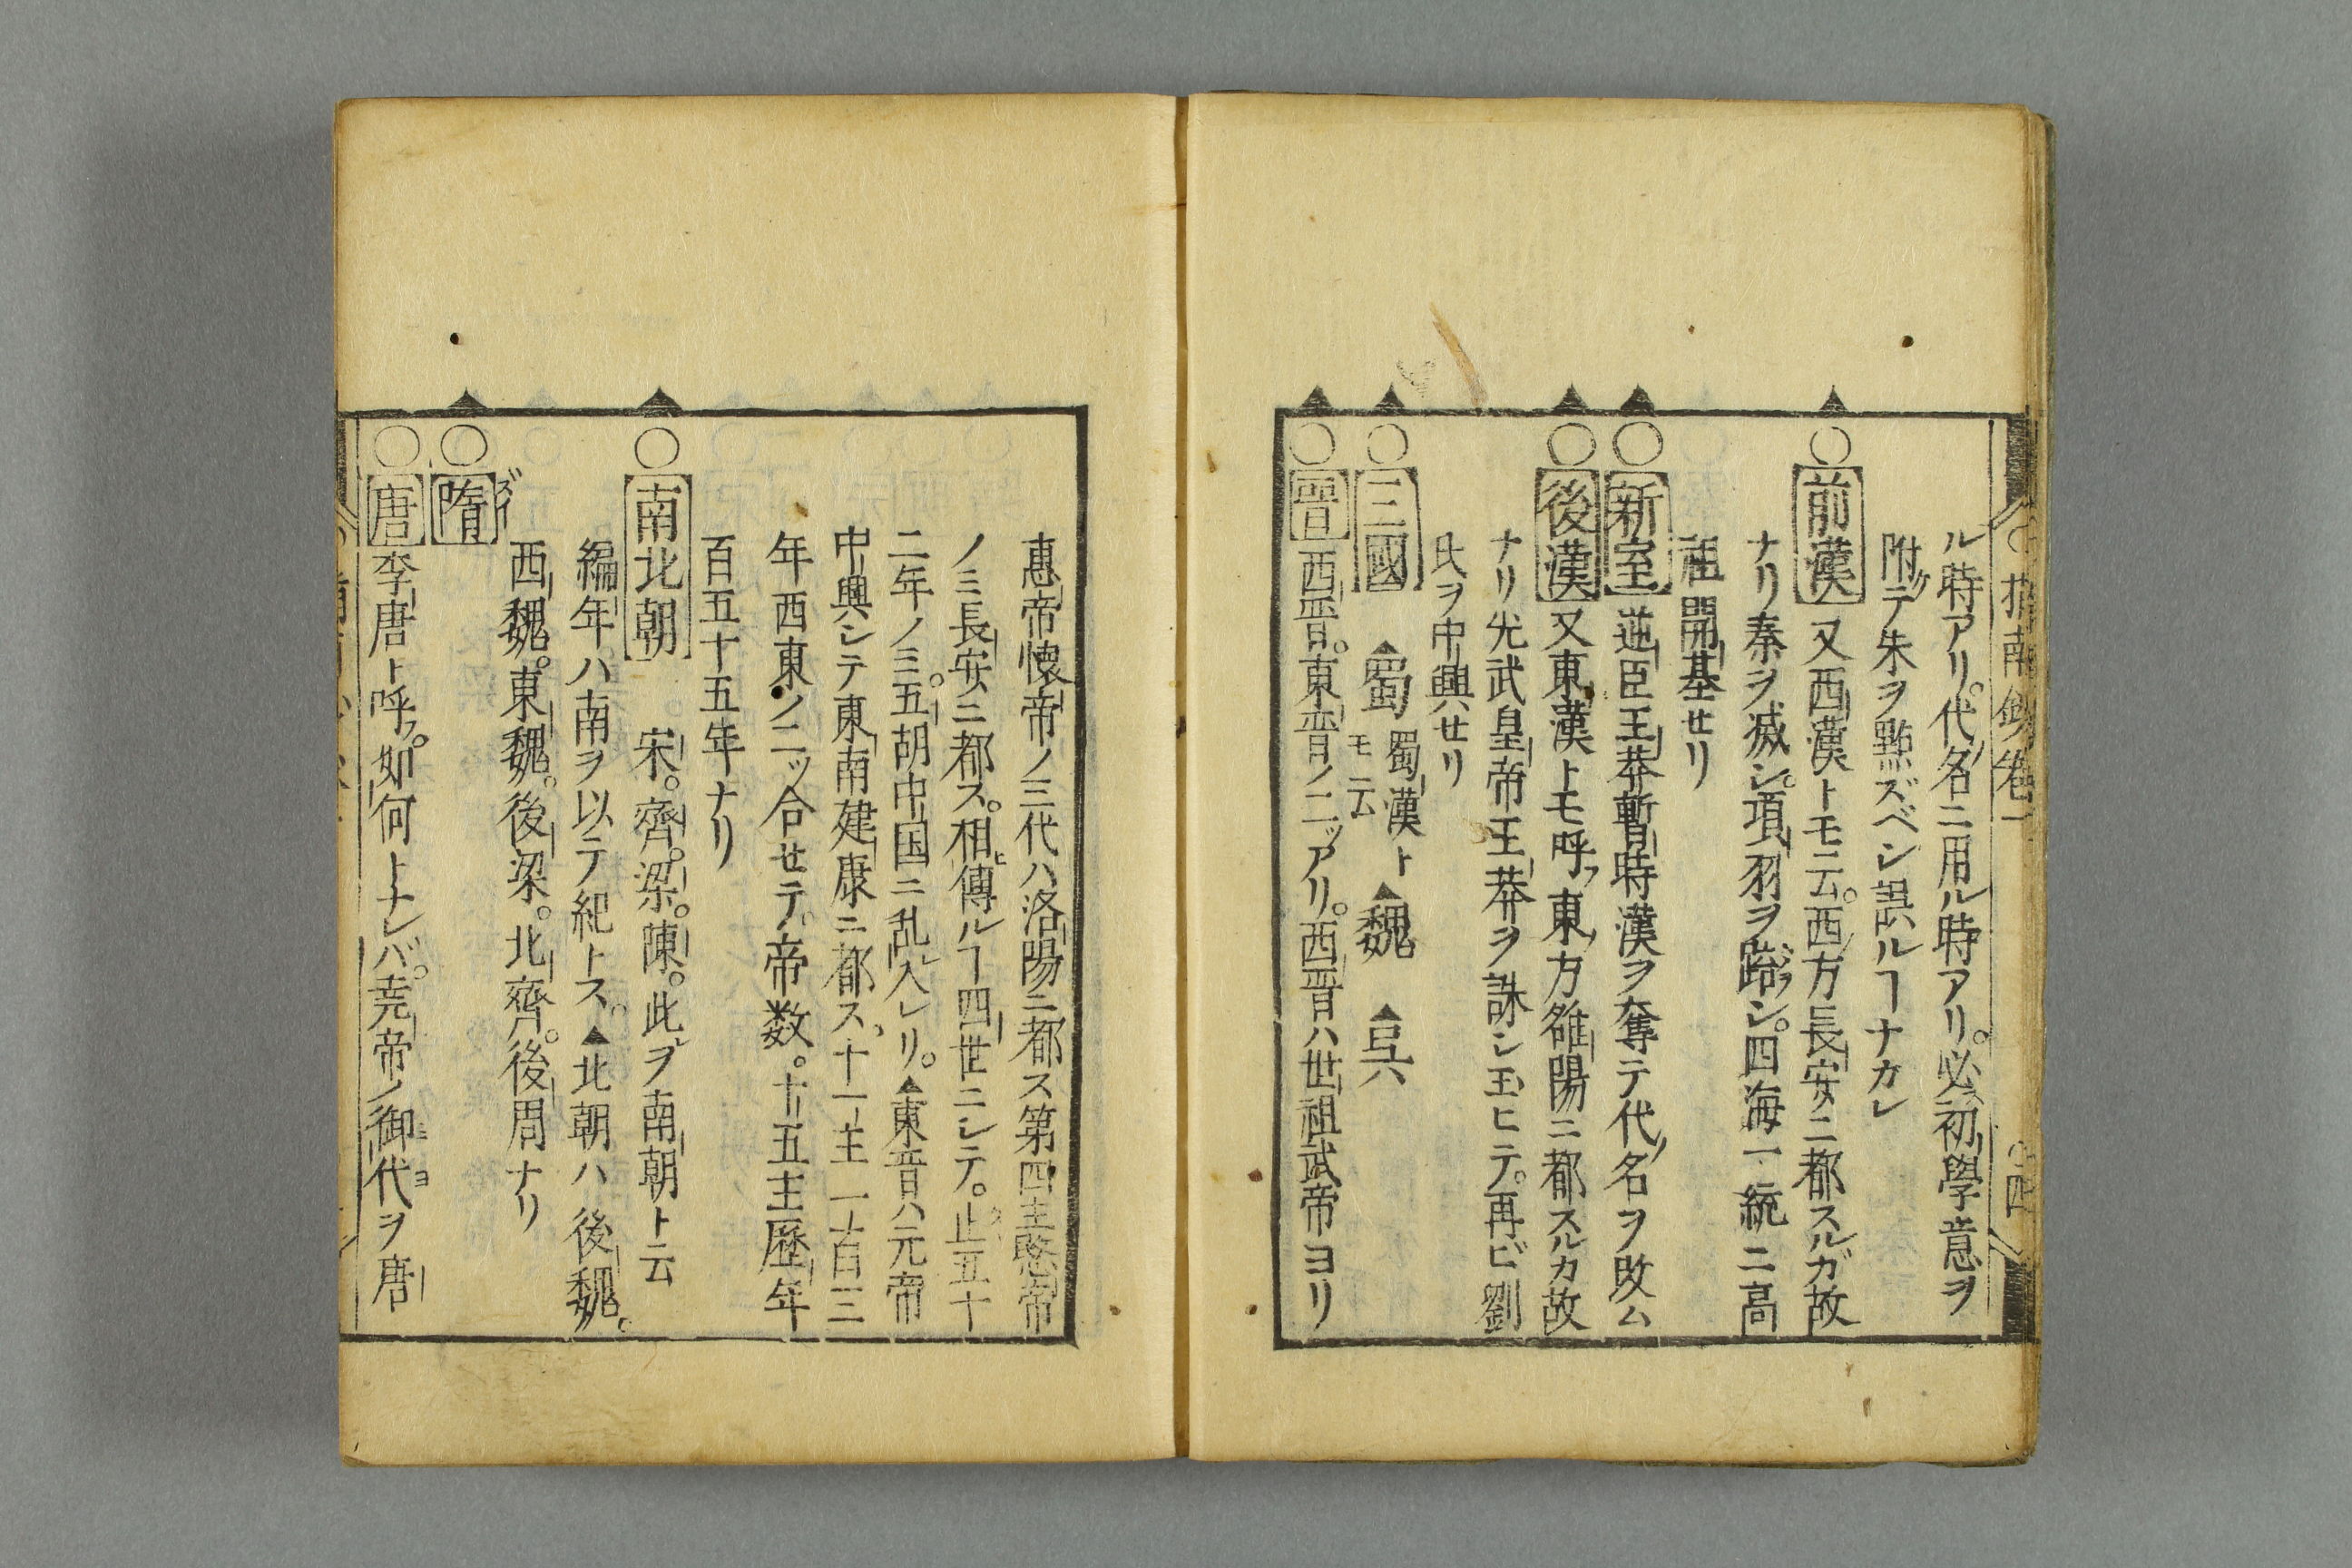 ル時アリ。代ノ名ニ用ル時アリ。必ス初學意ヲ
附ケテ朱ヲ點ズベシ誤ルヿナカレ
○前漢 又西漢トモ云。西ノ方長安ニ都スルガ故
ナリ秦ヲ滅シ。項羽ヲ踣シ。四海一統ニ高
祖開基せリ
○新室 逆臣王莽暫時漢ヲ奪テ代ノ名ヲ改ム
○後漢 又東漢トモ呼フ東ノ方雒陽ニ都スルカ故
ナリ光武皇帝王莽ヲ誅シ玉ヒテ。再ビ劉
氏ヲ中興せリ
○三國 ▲蜀 蜀漢トモ云 ▲魏 ▲呉
○晋 西晋。東晋ノ二ツアリ。西晋ハ世祖武帝ヨリ
指南鈔卷一 四
惠帝懷帝ノ三代ハ洛陽ニ都ス第四主愍帝
ノミ長安ニ都ス。相ヒ傳ルヿ四世ニシテ。止五十
二年ノミ。五胡中国ニ乱レ入レリ。▲東晋ハ元帝
中興シテ東南建康ニ都ス、十一主一百三
年西東ノ二ツ合せテ帝数。十五主歴年
百五十五年ナリ
○南北朝 宋。齊。梁。陳。此レヲ南朝ト云
編年ハ南ヲ以テ紀トス。▲北朝ハ後魏。
西魏。東魏。後梁。北齊。後周ナリ
○隋 ズイ
○唐 李唐ト呼フ。如何トナレバ。尭帝ノ御代ヲ唐